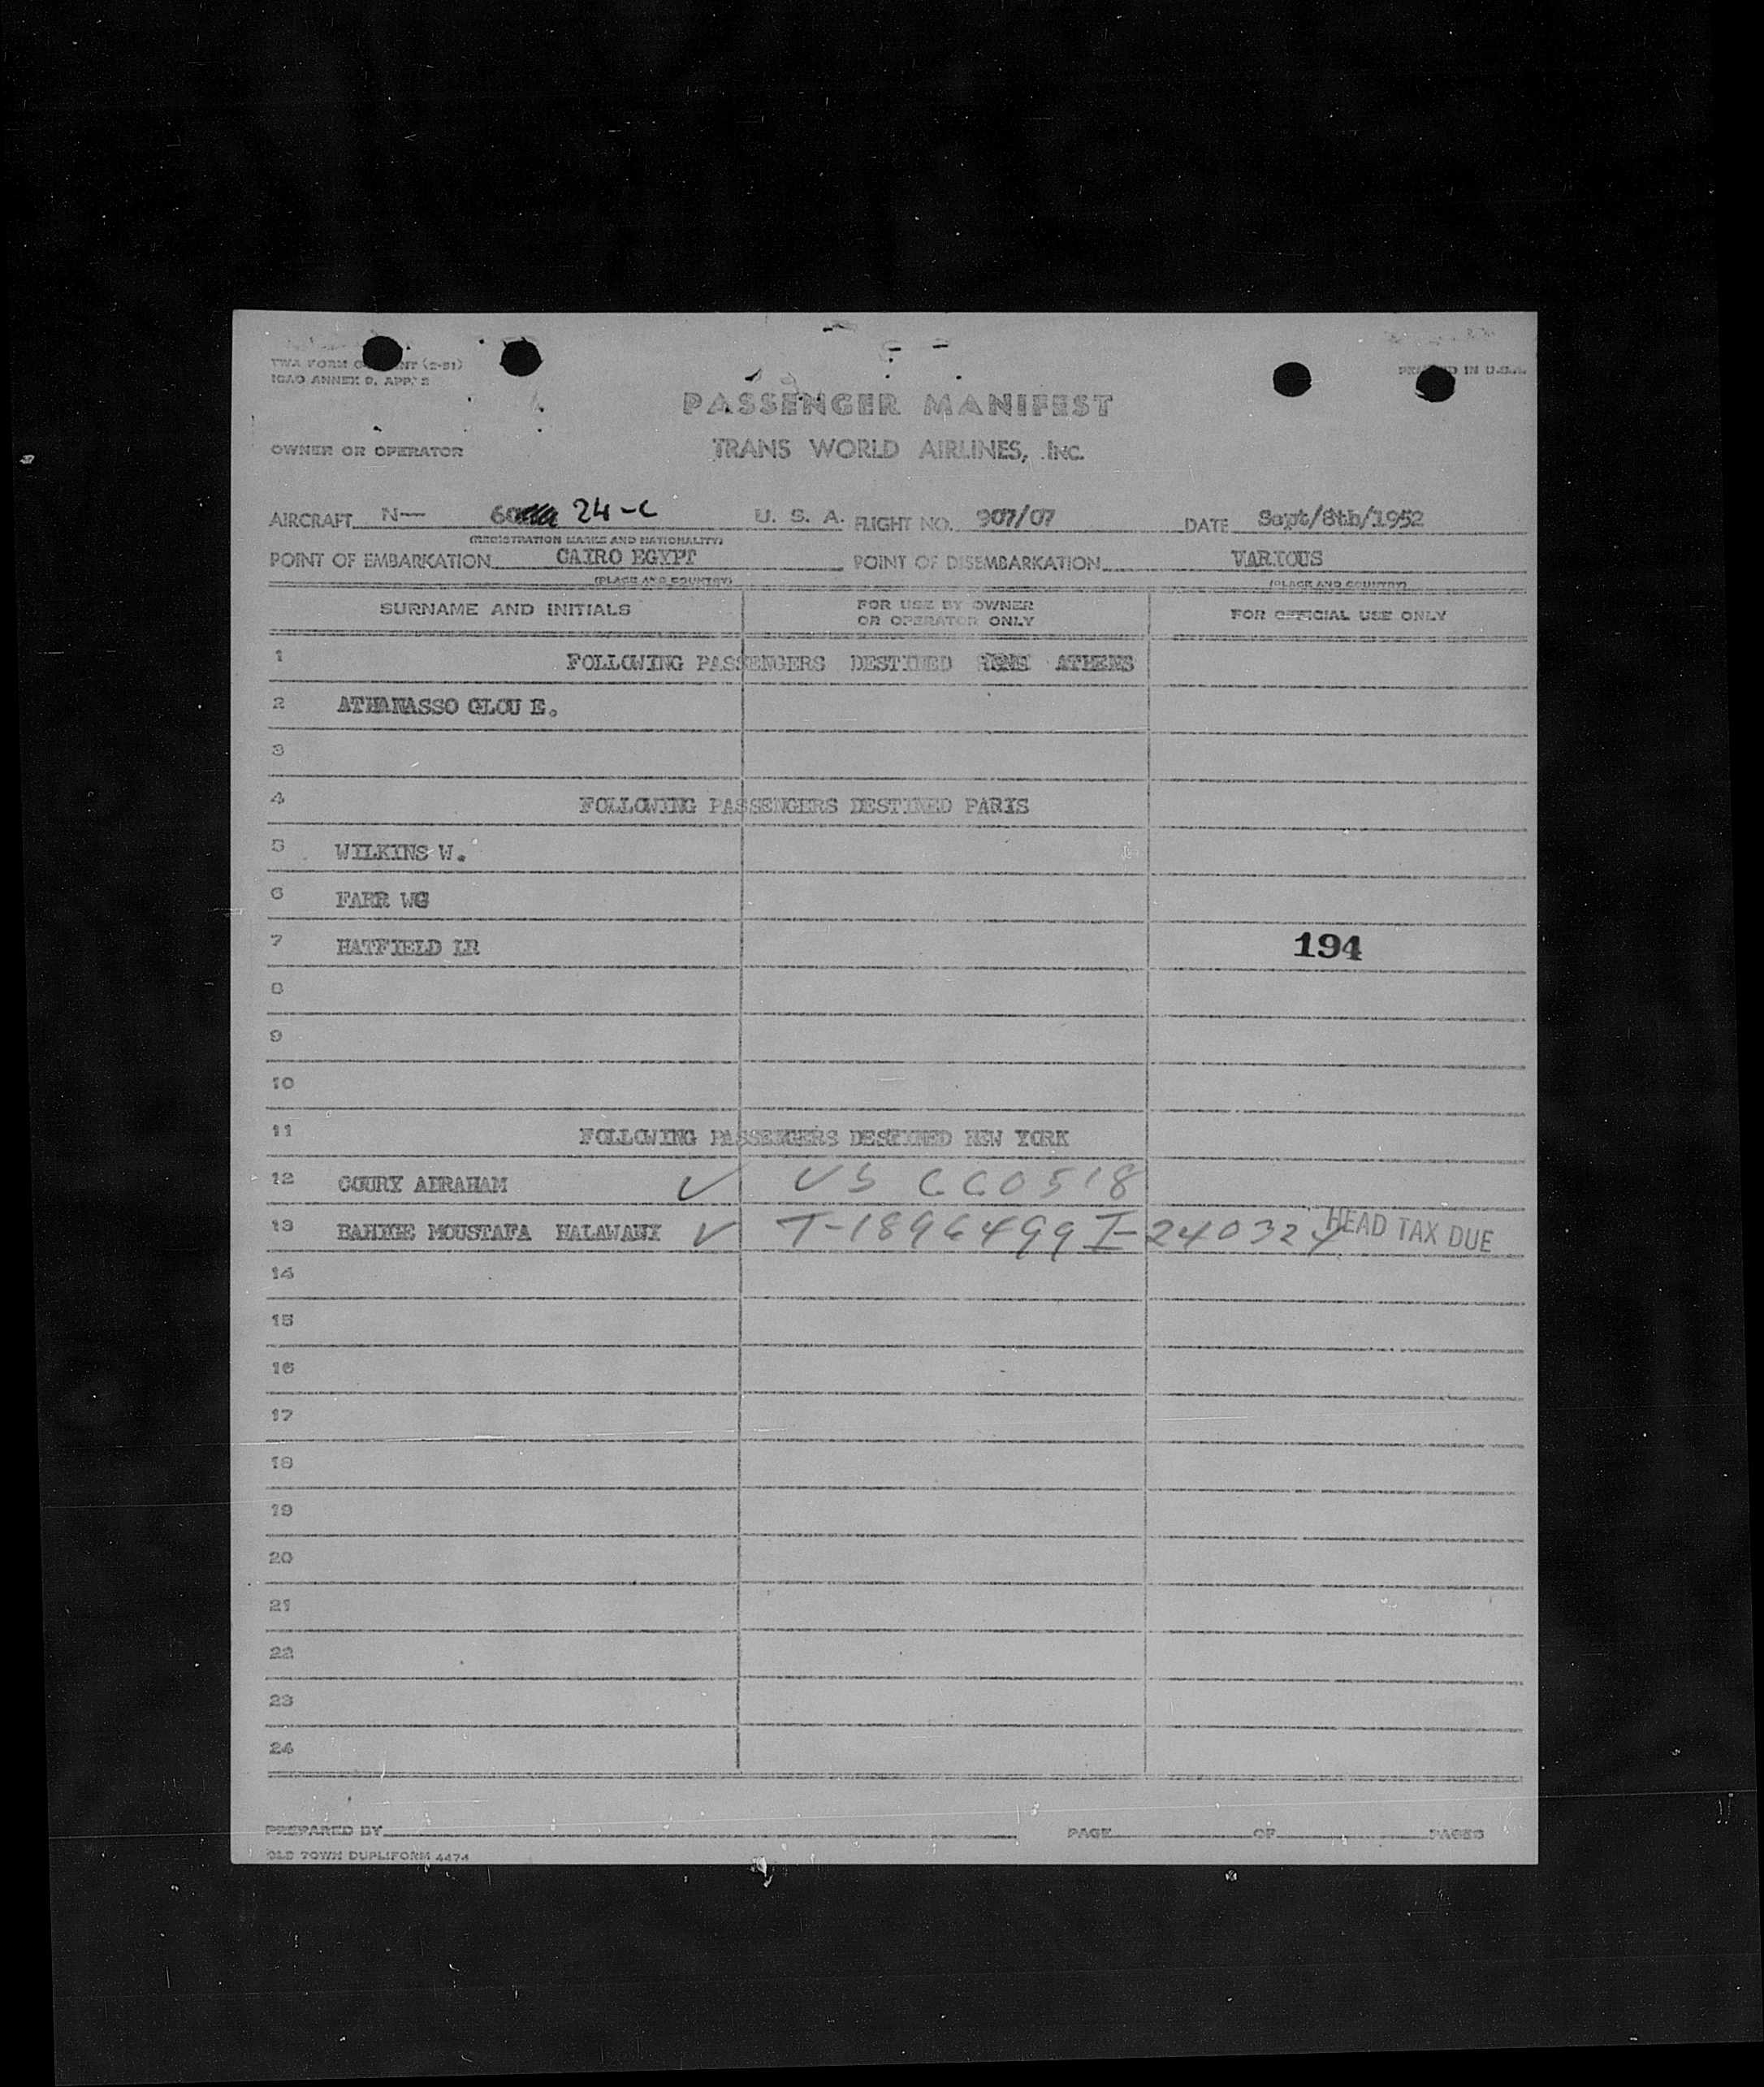 TWA FORM (2-51)
ICAO ANNEX 9, APP. 2
IN U.S.A.
PASSENGER MANIFEST
OWNER OR OPERATOR TRANS WORLD AIRLINES, INC.
AIRCRAFT N— 60 24-C U. S. A. FLIGHT NO. 907/07 DATE Sept/8th/1952
(REGISTRATION MARKS AND NATIONALITY)
POINT OF EMBARKATION CAIRO EGYPT POINT OF DISEMBARKATION VARIOUS
(PLACE AND COUNTRY) (PLACE AND COUNTRY)
SURNAME AND INITIALS FOR USE BY OWNER OR OPERATOR ONLY FOR OFFICIAL USE ONLY
1 FOLLOWING PASSENGERS DESTINED ATHENS
2 ATHANASSO GLOU E.
3
4 FOLLOWING PASSENGERS DESTINED PARIS
5 WILKINS W.
6 FARR WG
7 HATFIELD LR 194
8
9
10
11 FOLLOWING PASSENGERS DESTINED NEW YORK
12 COURY ABRAHAM ✓ US 660518
13 MOUSTAFA HALAWANY ✓ T-1896499 I-240324 HEAD TAX DUE
14
15
16
17
18
19
20
21
22
23
24
PREPARED BY PAGE OF PAGES
OLD TOWN DUPLIFORM 4474